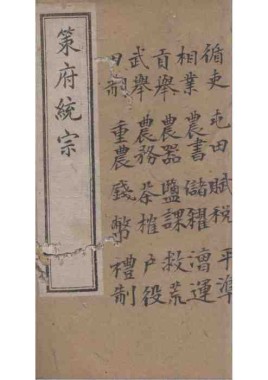 循吏 屯田 賦稅 平準
相業 農書 儲糴 漕運
貢舉 農器 鹽課 救荒
武舉 農務 茶榷 戶役
田制 重農 錢幣 禮制
策府統宗